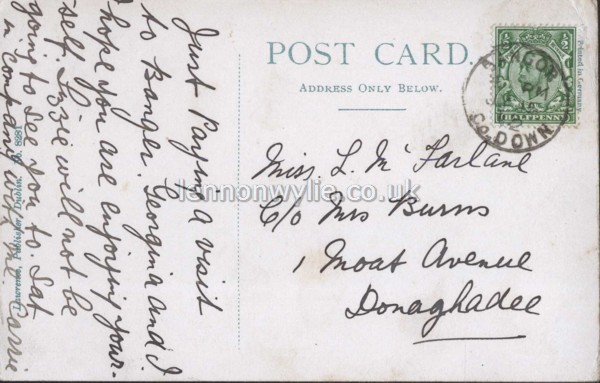 POST CARD.
ADDRESS ONLY BELOW.
Printed in Germany.
½ ½
HALFPENNY
BANGOR
PM
12
Co. DOWN
Just Paying a visit
to Bangor. Georgina and I.
hope you are enjoying your-
self. Lizzie will not be
going to see you to. Sat
in company with me Carrie
Miss. L. McFarlane
C/o Mrs Burns
1 Moat Avenue
Donaghadee
Lawrence, Publisher, Dublin. No. 8281
lennonwylie.co.uk